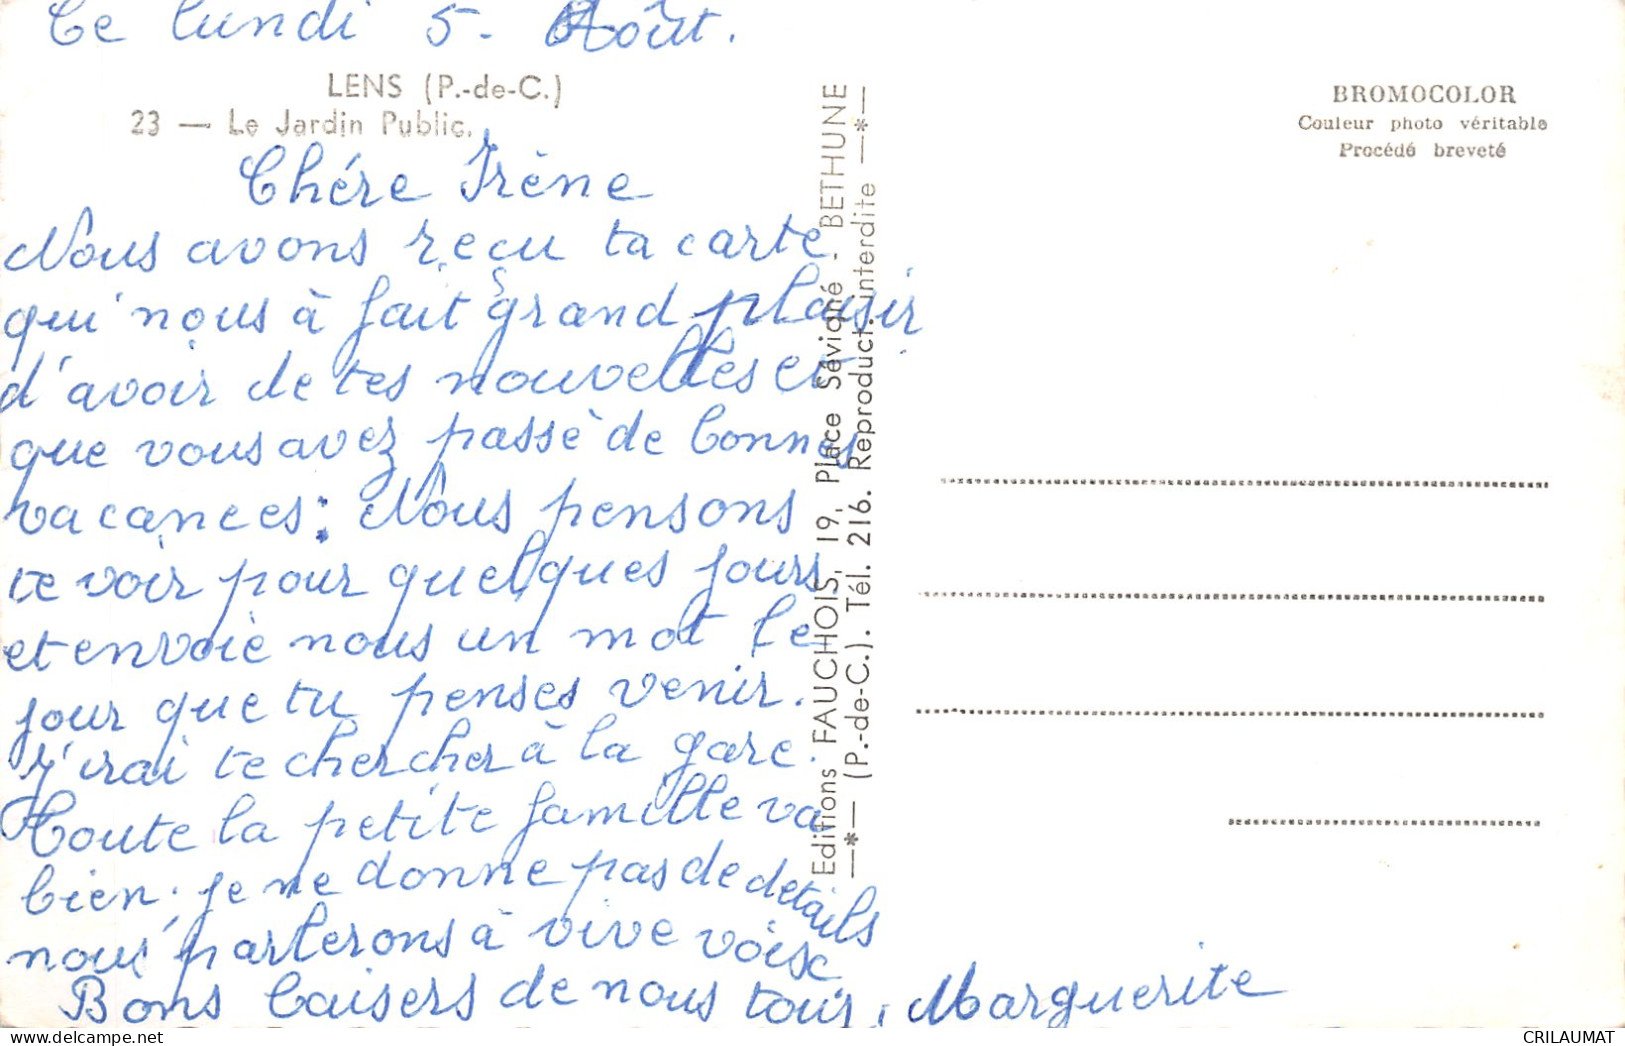 Ce lundi 5. Août.
LENS (P.-de-C.)
23 — Le Jardin Public.
Chére Irène
Nous avons reçu ta carte
qui nous à fait grand plaisir
d'avoir de tes nouvelles et
que vous avez passè de bonnes
vacances: Nous pensons
te voir pour quelques jours
et envoie nous un mot le
jour que tu penses venir.
J'irai te chercher à la gare.
Toute la petite famille va
bien. je ne donne pas de details
nous parlerons à vive voise
Bons baisers de nous tous, Marguerite
Editions FAUCHOIS, 19, Place Sévigné - BETHUNE
—*— (P.-de-C.). Tél. 216. Reproduct. interdite —*—
BROMOCOLOR
Couleur photo véritable
Procédé breveté
CRILAUMAT